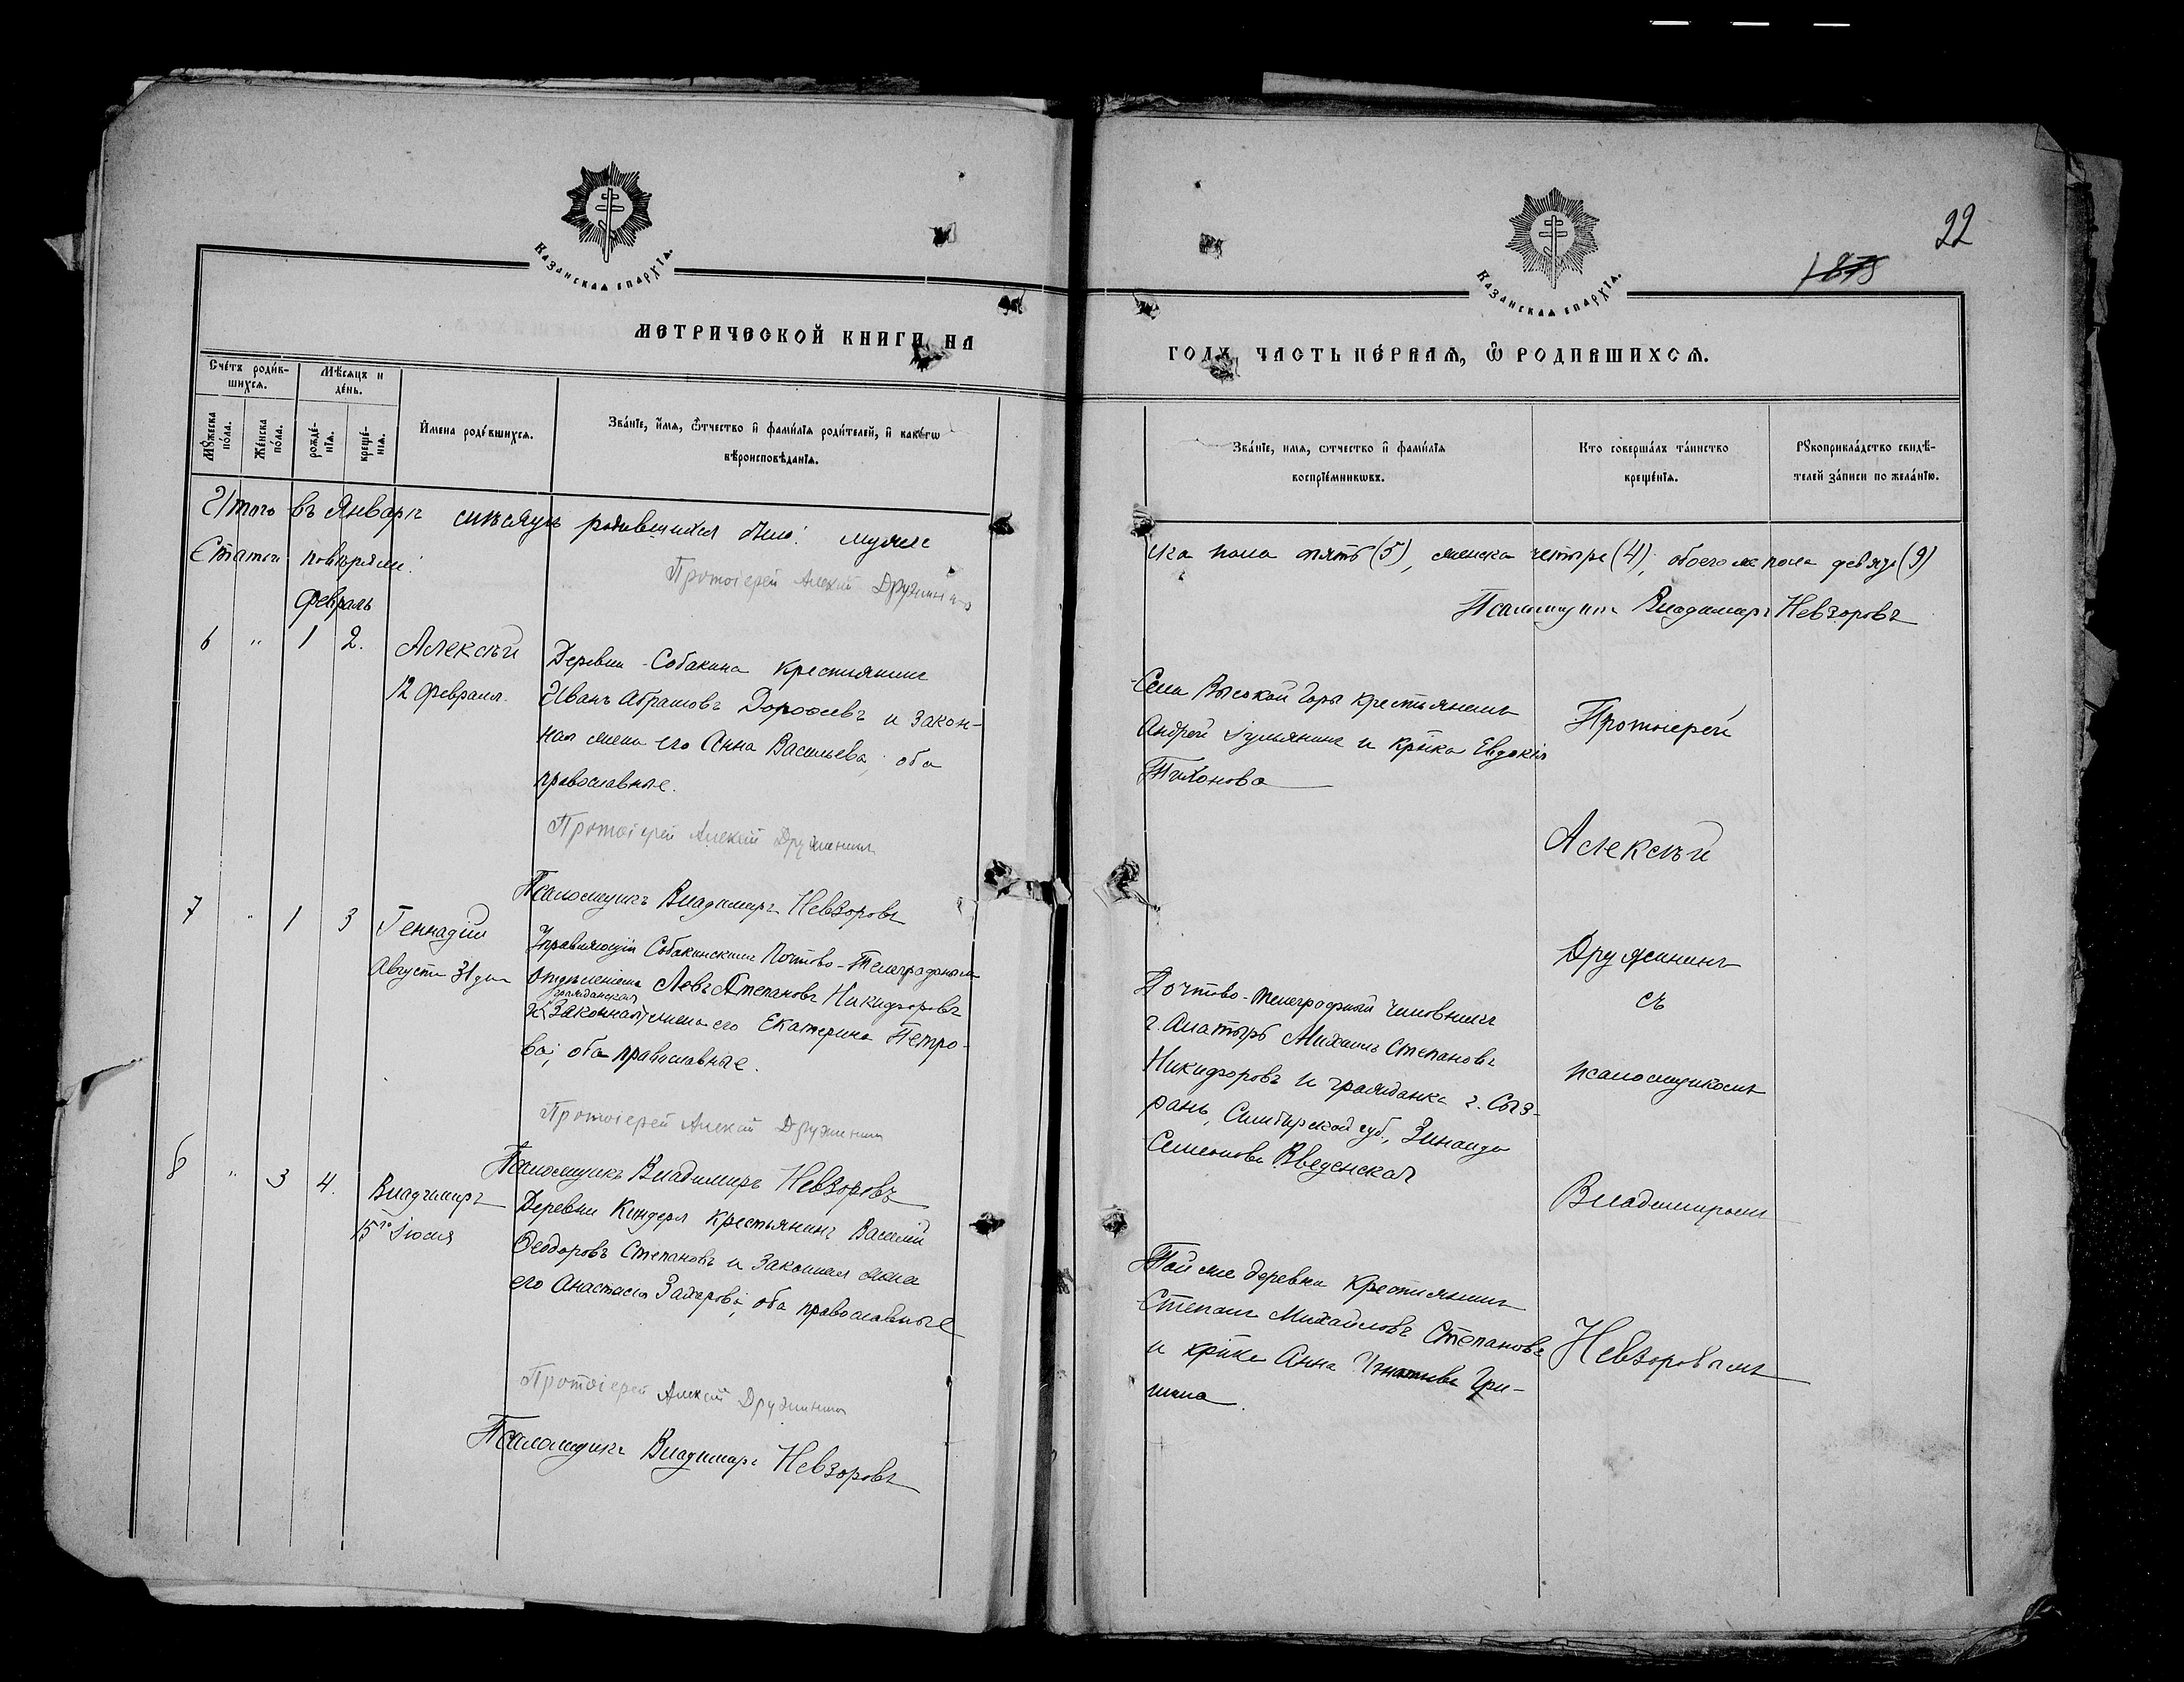 Казанская епархїѧ.
МЕТРИЧЕСКОЙ КНИГИ НА
Сче́тъ роди́в-
шихсѧ.
Мѣ́сѧцъ и
де́нь.
Мꙋ́жеска
по́ла.
Же́нска
по́ла.
рожде́-
нїѧ.
креще́-
нїѧ.
И҆мена роди́вшихсѧ.
Зва́нїе, и҆́мѧ, ѻ҆́тчество и҆ фами́лїѧ роди́телей, и҆ како́гѡ
вѣроисповѣ́данїѧ.
Итого въ Январѣ мѣсяцѣ родившихся было: муже
Статьи повѣряли:
Протоіерей Алексѣй Дружининъ
Февраль
6 " 1 2. Алексѣй
12 Февраля.
Деревни Собакина крестьянинъ
Иванъ Абрамовъ Дорофеевъ и закон-
ная жена его Анна Васильева; оба
православные.
Протоіерей Алексѣй Дружининъ
Псаломщикъ Владимиръ Невзоровъ
7 " 1 3 Геннадій
Августа 31 дня
Управляющій Собакинскимъ Почтово-Телеграфнымъ
Отдѣленіемъ Левъ Степановъ Никифоровъ
гражданская
и законная жена его Екатерина Петро-
ва; оба православные.
Протоіерей Алексѣй Дружининъ
Псаломщикъ Владимиръ Невзоровъ
8 " 3 4. Владимиръ
15го Іюля
Деревни Киндери крестьянинъ Василій
Ѳеодоровъ Степановъ и законная жена
его Анастасія Захарова; оба православные
Протоіерей Алексѣй Дружининъ
Псаломщикъ Владимиръ Невзоровъ
22
1878
Казанская епархїѧ.
ГОДЪ ЧАСТЬ ПЕ́РВАѦ, Ѽ РОДИВШИХСѦ.
Зва́нїе, имѧ, ѻтчество и҆ фами́лїѧ
воспрїе́мникѡвъ.
Кто соверша́лъ та́инство
креще́нїѧ.
Рꙋкоприкла́дство свидѣ́-
телей за́писи по жела́нїю.
ска пола пять (5), женска четыре (4), обоего же пола девять (9)
Псаломщикъ Владимиръ Невзоровъ
Села Высокой Горы крестьянинъ
Андрей Іульянинъ и кр–нка Евдокія
Тихонова
Почтово-телеграфный чиновникъ
г. Алатырь Михаилъ Степановъ
Никифоровъ и гражданка г. Сыз-
рань, Симбирской губ., Зинаида
Семенова Введенская
Той же деревни крестьянинъ
Степанъ Михайловъ Степановъ
и кр–нка Анна Игнатьева Гри-
шина.
Протоіерей
Алексѣй
Дружининъ
съ
псаломщикомъ
Владимиромъ
Невзоровымъ